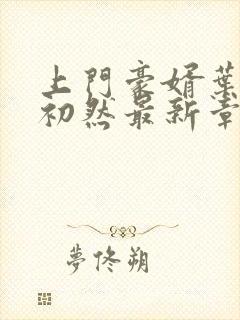 上門豪婿葉
初然最新章
夢佟朔